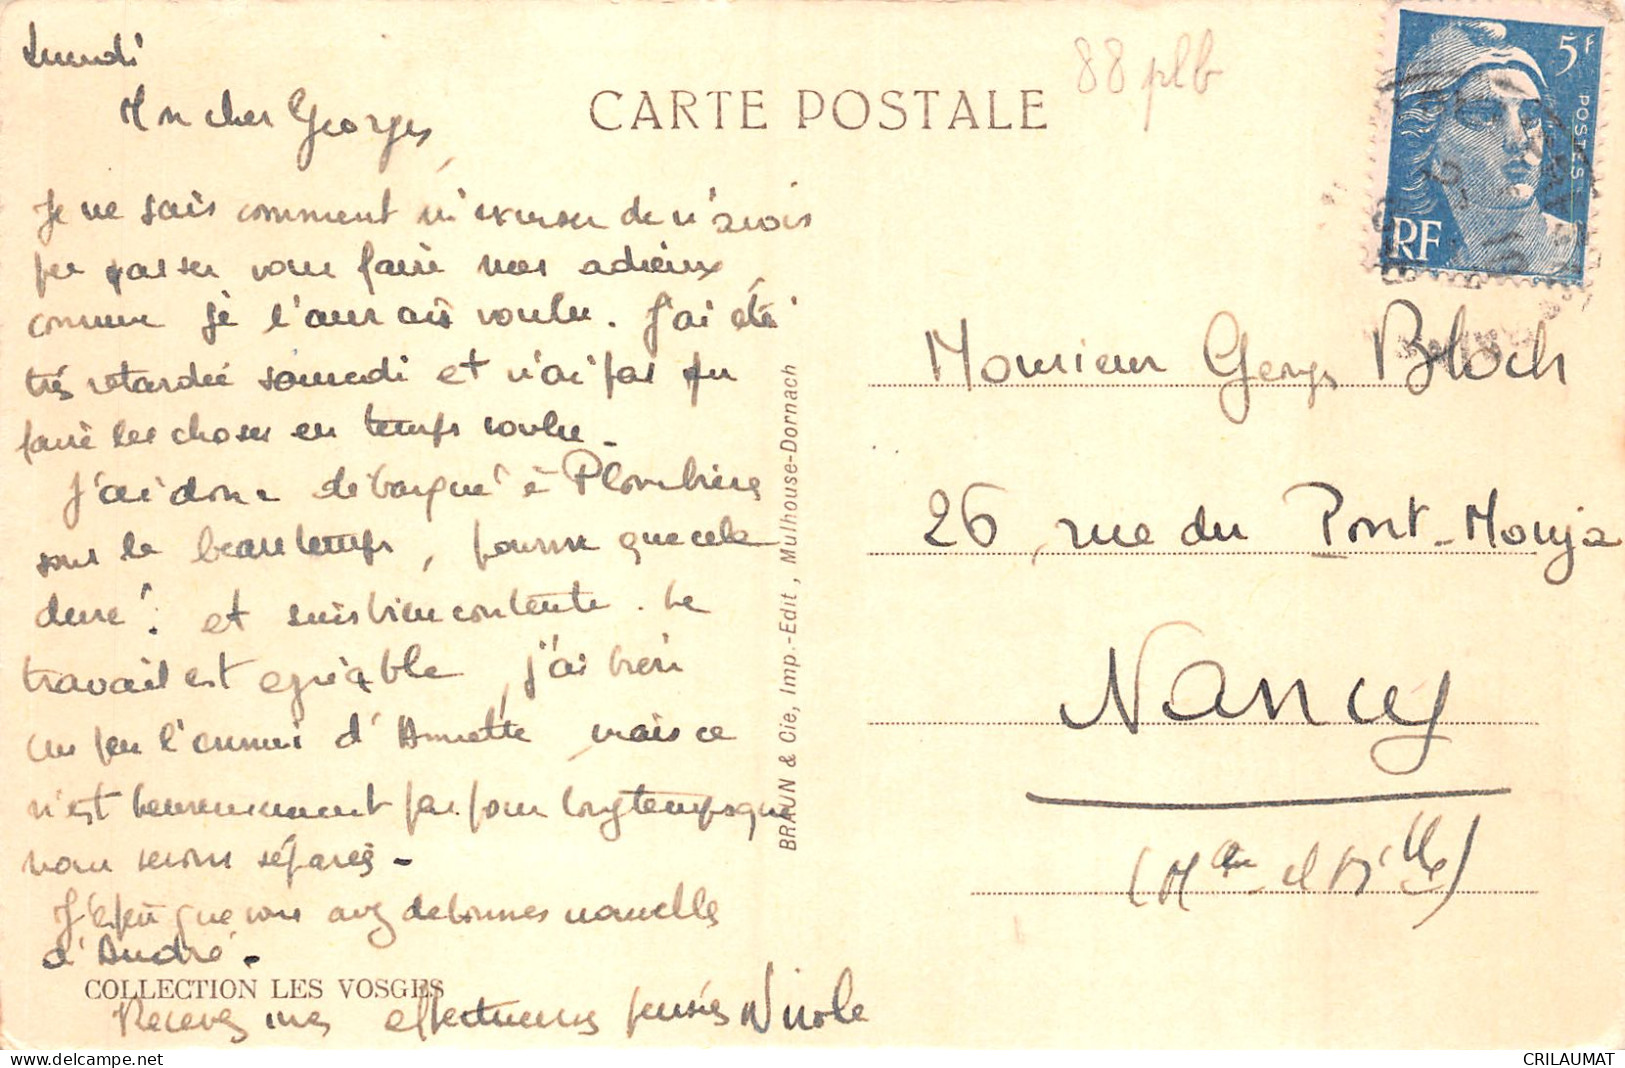 Lundi
Mon cher Georges,
CARTE POSTALE
88 plb
5F
POSTES
RF
Je ne sais comment m'excuser de n'avoir
pu passer vous faire mes adieux
comme je l'aurais voulu. J'ai été
très retardée samedi et n'ai pas pu
faire les choses en temps voulu.
J'ai donc débarqué à Plombières
sous le beau temps, pourvu que cela
dure! et suis bien contente. Le
travail est agréable, j'ai bien
un peu l'ennui d'Annette mais ce
n'est heureusement pas pour longtemps que
nous serons séparés -
J'espère que vous avez de bonnes nouvelles
d'André.
Recevez mes affectueuses pensées Nicole
COLLECTION LES VOSGES
BRAUN & Cie, Imp.-Edit, Mulhouse-Dornach
Monsieur Georges Bloch
26, rue du Pont-Mouja
Nancy
(Mthe et Mlle)
CRILAUMAT